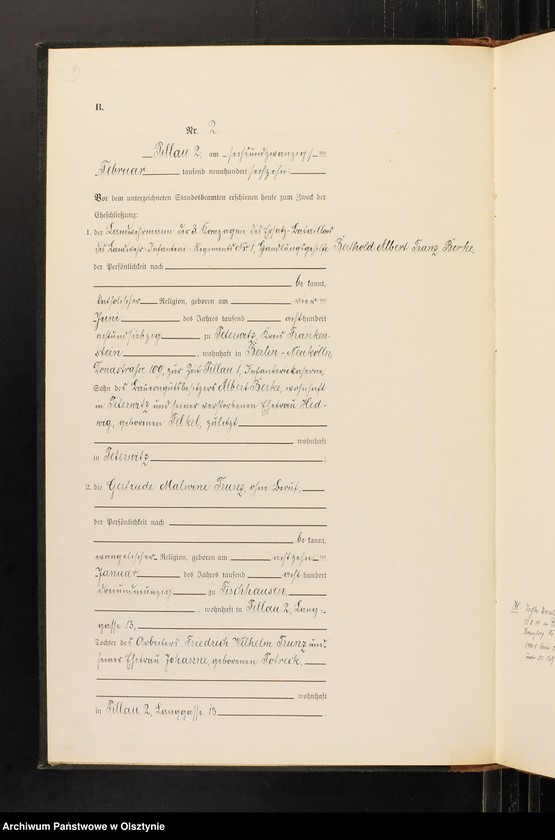 B.
Nr. 2
Pillau 2, am sechsundzwanzigs ten
Februar tausend neunhundert sechzehn
Vor dem unterzeichneten Standesbeamten erschienen heute zum Zweck der
Eheschließung:
1. der Landwehrmann der 3. Kompagnie des Ersatz-Bataillons
des Landwehr-Infanterie-Regiments Nr 1, Handlungsgehilfe Berthold Albert Franz Berke,
der Persönlichkeit nach
be kannt,
katholischer Religion, geboren am vier ten
Juni des Jahres tausend acht hundert
achtundsiebzig zu Peterwitz, Kreis Franken-
stein, wohnhaft in Berlin-Neukölln,
Donastraße 100, zur Zeit Pillau 1, Infanteriekaserne,
Sohn des Bauerngutsbesitzers Albert Berke, wohnhaft
in Peterwitz und seiner verstorbenen Ehefrau Hed-
wig, geborenen zuletzt
wohnhaft
in Peterwitz;
2. die Gertrude Malwine Trunz, ohne Beruf,
der Persönlichkeit nach
be kannt,
evangelischer Religion, geboren am achtzehn ten
Januar des Jahres tausend acht hundert
dreiundneunzig zu Fischhausen
, wohnhaft in Pillau 2, Lang-
gasse 13,
Tochter des Arbeiters Friedrich Wilhelm Trunz und
seiner Ehefrau Johanne, geborenen Potreck,
wohnhaft
in Pillau 2, Langgasse 13.
Archiwum Państwowe w Olsztynie